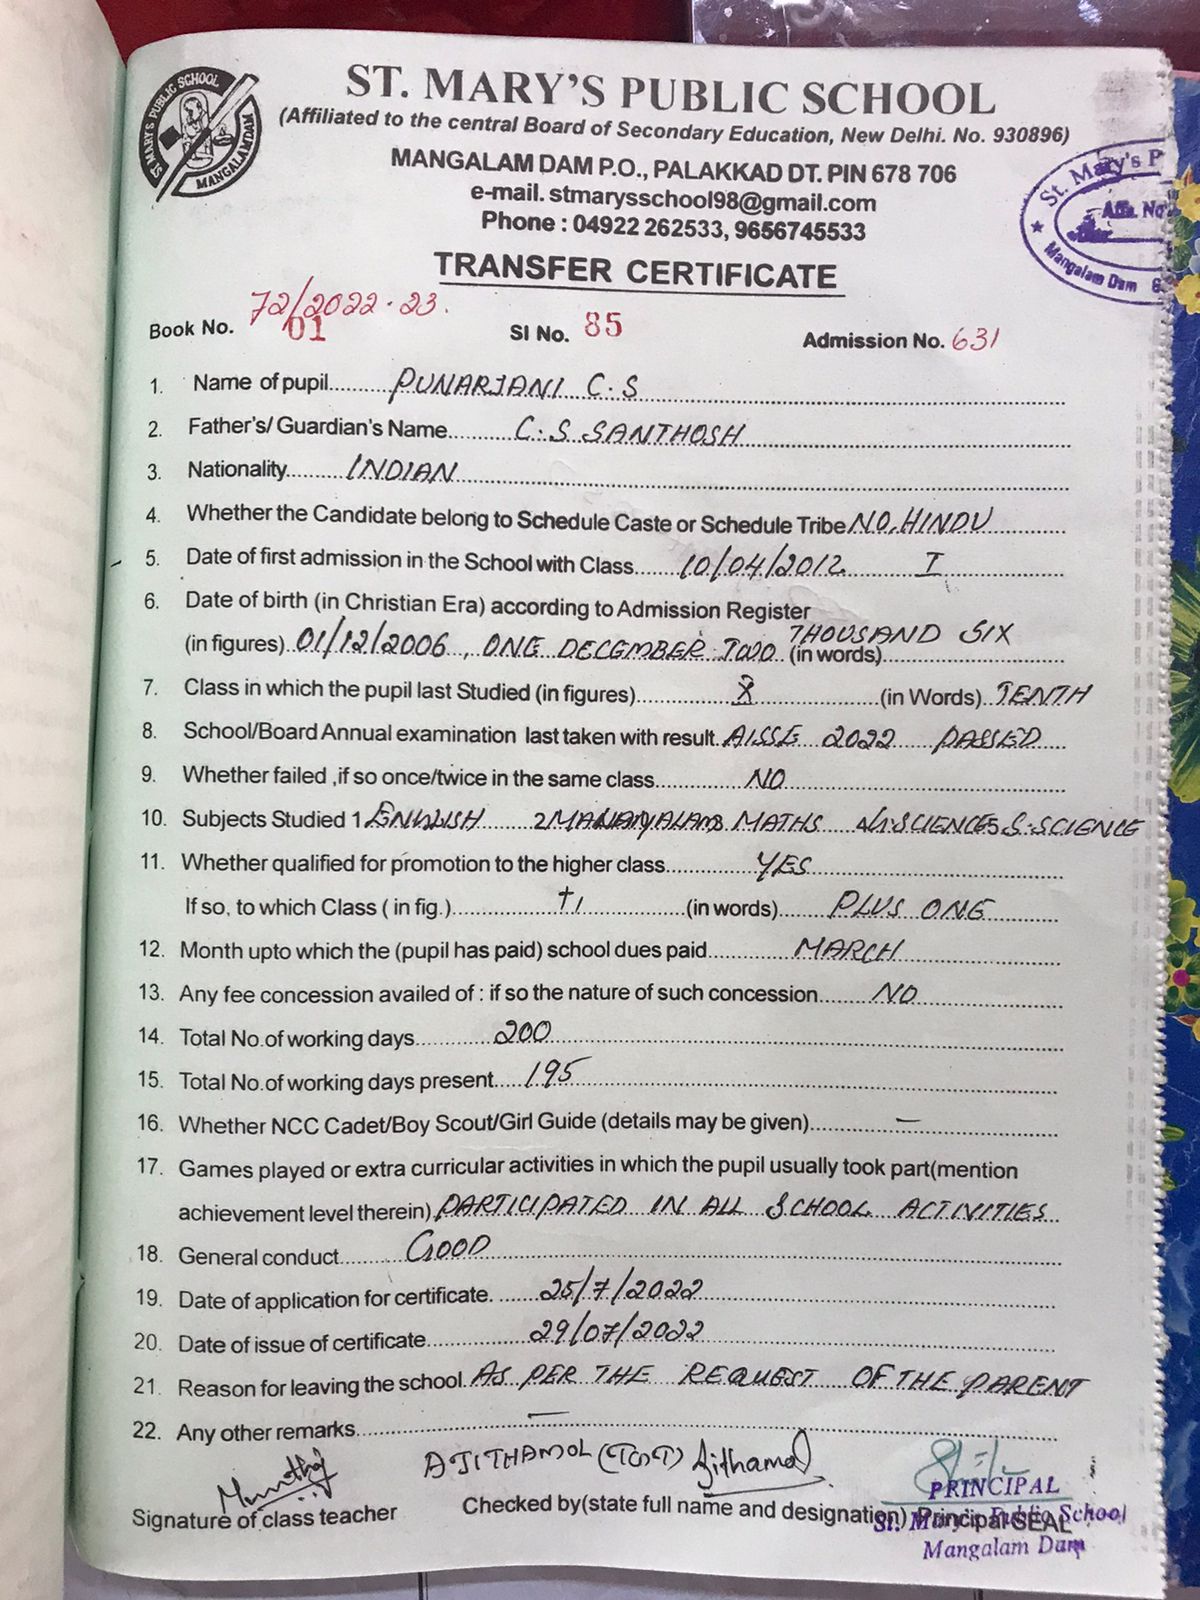 ST. MARY'S PUBLIC SCHOOL
MANGALAM DAM
ST. MARY'S PUBLIC SCHOOL
(Affiliated to the central Board of Secondary Education, New Delhi. No. 930896)
MANGALAM DAM P.O., PALAKKAD DT. PIN 678 706
e-mail. stmarysschool98@gmail.com
Phone : 04922 262533, 9656745533
St. Mary's P
Affn. No
Mangalam Dam 6
TRANSFER CERTIFICATE
72/2022-23.
Book No. 01 SI No. 85 Admission No. 631
1. Name of pupil PUNARJANI C.S
2. Father's/ Guardian's Name C.S SANTHOSH
3. Nationality INDIAN
4. Whether the Candidate belong to Schedule Caste or Schedule Tribe NO, HINDU
5. Date of first admission in the School with Class 10/04/2012 I
6. Date of birth (in Christian Era) according to Admission Register
(in figures) 01/12/2006, ONE DECEMBER TWO (in words) THOUSAND SIX
7. Class in which the pupil last Studied (in figures) X (in Words) TENTH
8. School/Board Annual examination last taken with result AISSE 2022 PASSED
9. Whether failed ,if so once/twice in the same class NO
10. Subjects Studied 1 ENGLISH 2 MALAYALAM 3 MATHS 4 SCIENCE 5 S.SCIENCE
11. Whether qualified for promotion to the higher class YES
If so, to which Class ( in fig.) +1 (in words) PLUS ONE
12. Month upto which the (pupil has paid) school dues paid MARCH
13. Any fee concession availed of : if so the nature of such concession NO
14. Total No.of working days 200
15. Total No.of working days present 195
16. Whether NCC Cadet/Boy Scout/Girl Guide (details may be given) —
17. Games played or extra curricular activities in which the pupil usually took part(mention
achievement level therein) PARTICIPATED IN ALL SCHOOL ACTIVITIES
18. General conduct GOOD
19. Date of application for certificate. 25/7/2022
20. Date of issue of certificate 29/07/2022
21. Reason for leaving the school AS PER THE REQUEST OF THE PARENT
22. Any other remarks —
AJITHAMOL (TGT) Ajithamol
Signature of class teacher Checked by(state full name and designation) Principal SEAL
PRINCIPAL
St. Mary's Public School
Mangalam Dam